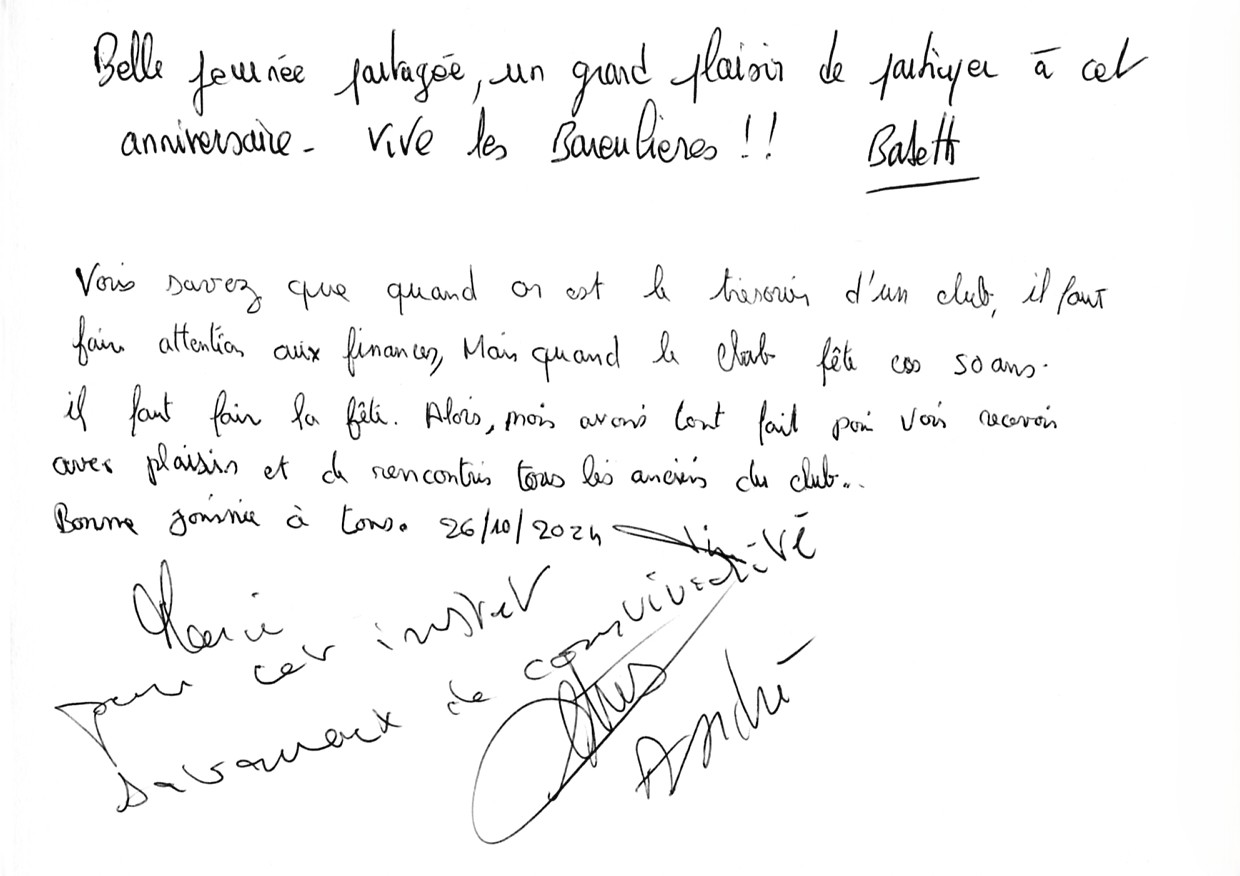 Belle journée partagée, un grand plaisir de participer à cet
anniversaire - Vive les Bareulières !!
Vous savez que quand on est le trésorier d'un club, il faut
faire attention aux finances, Mais quand le club fête ces 50 ans.
il faut faire la fête. Alors, nous avons tout fait pour vous recevoir
avec plaisir et de rencontrer tous les anciens du club...
Bonne journée à tous. 26/10/2024
Merci
pour cet instant
savoureux de convivialité
André